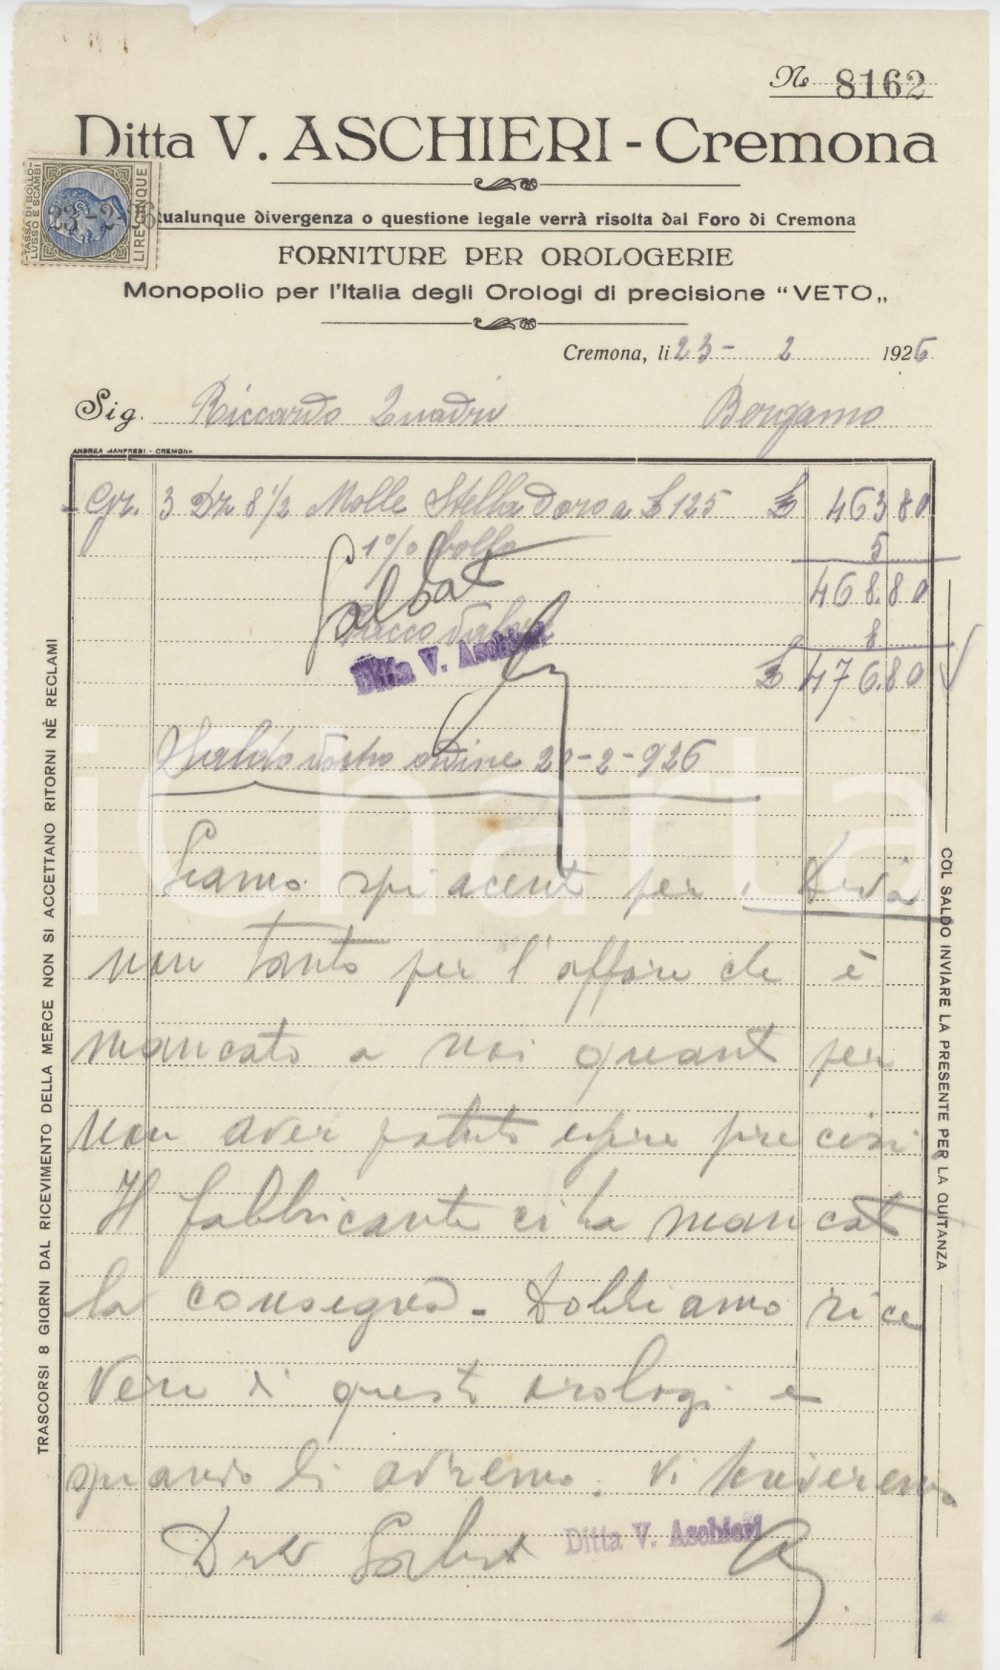 No 8162
Ditta V. ASCHIERI - Cremona
TASSA DI BOLLO
LUSSO E SCAMBI
LIRE CINQUE
23-2-26
qualunque divergenza o questione legale verrà risolta dal Foro di Cremona
FORNITURE PER OROLOGERIE
Monopolio per l'Italia degli Orologi di precisione "VETO„
Cremona, li 23 - 2 1926
Sig. Riccardo Quadri Bergamo
ANDREA MANFREDI - CREMONA
Gr. 3 Dz 8 1/2 Molle Stella d'oro a £ 125 £ 463 80
1% bollo 5
468.80
Pacco valore 8
£ 476.80
Saldato
Ditta V. Aschieri
Saldo vostro ordine 20-2-926
Siamo spiacenti per i
non tanto per l'affare che è
mancato a noi quanto per
non aver potuto essere precisi.
Il fabbricante ci ha mancato
la consegna - Dobbiamo rice
vere di questi orologi e
quando li avremo. Vi
Ditta V. Aschieri
TRASCORSI 8 GIORNI DAL RICEVIMENTO DELLA MERCE NON SI ACCETTANO RITORNI NÈ RECLAMI
COL SALDO INVIARE LA PRESENTE PER LA QUITANZA
icharta